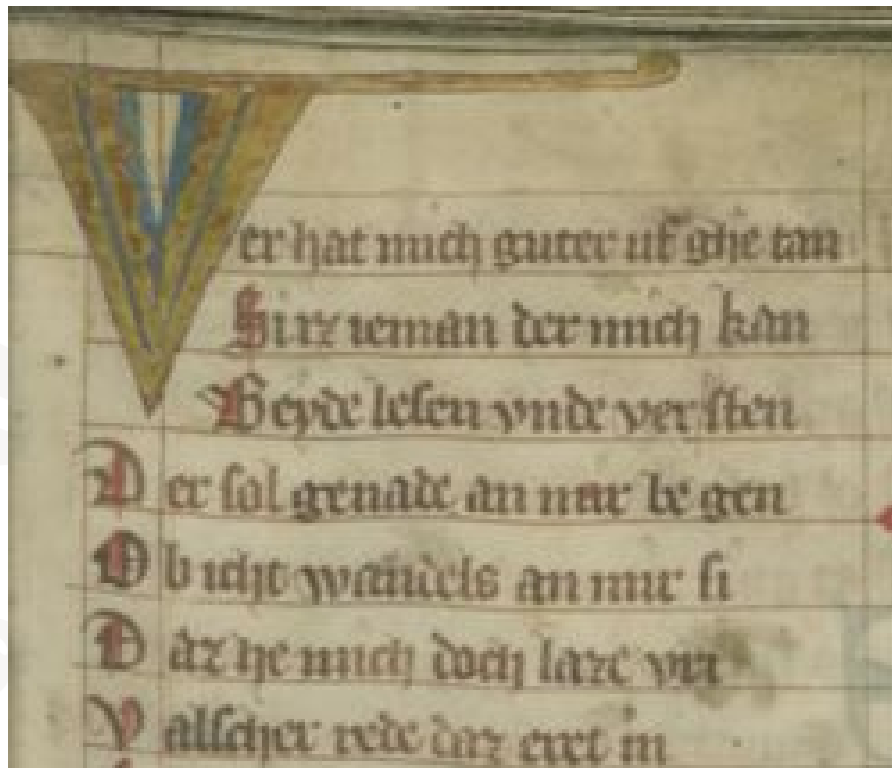 Ver hat mich guter uf ghe tan
Si iz ieman der mich kan
Beyde lesen vnde versten
Der sol genade an mir be gen
Ob icht wandels an mir si
Daz he mich doch laze vri
Valscher rede daz eret in